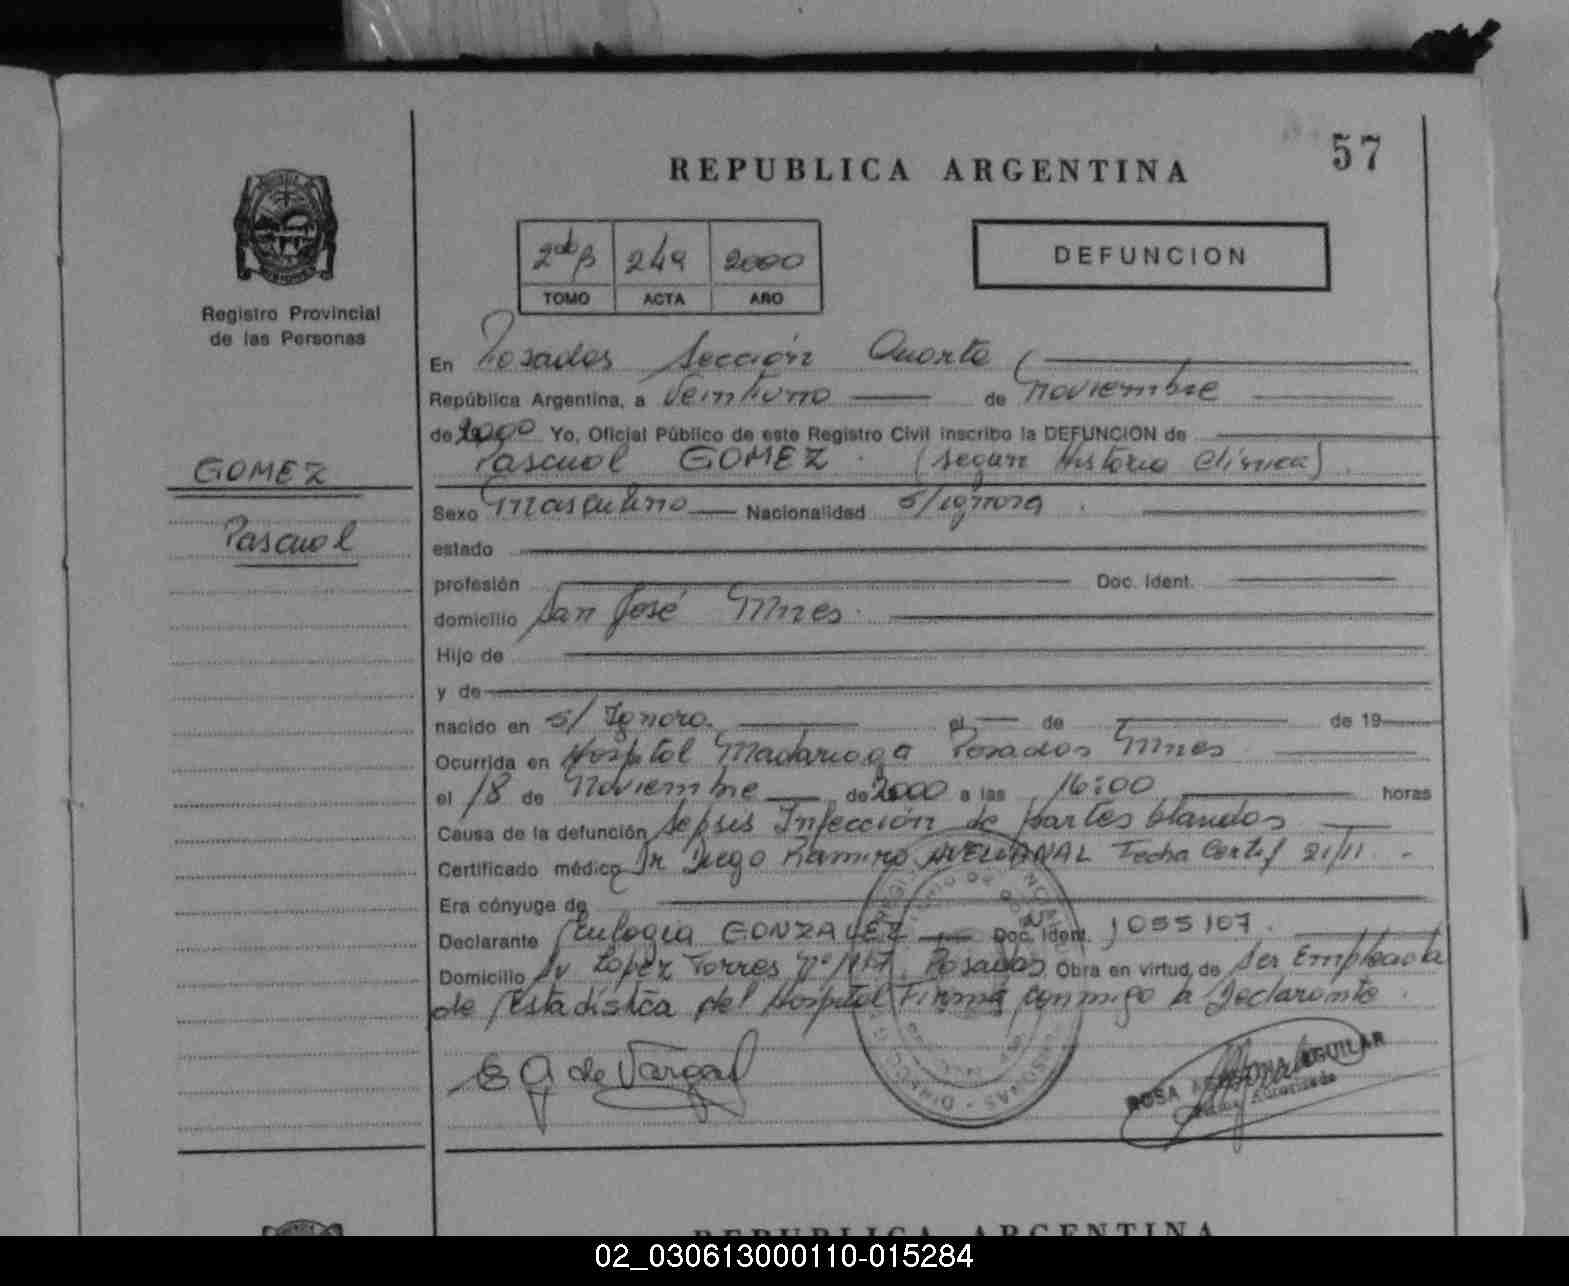 57
REPUBLICA ARGENTINA
Registro Provincial
de las Personas
2do B 249 2000
TOMO ACTA AÑO
DEFUNCION
En Posadas Sección Cuarta
República Argentina, a Veintiuno de Noviembre
de 2000 Yo, Oficial Público de este Registro Civil inscribo la DEFUNCION de
GOMEZ
Pascual GOMEZ. (según Historia Clínica)
Pascual
Sexo Masculino Nacionalidad s/ignora
estado
profesión Doc. Ident.
domicilio San José Mnes.
Hijo de
y de
nacido en s/ Ignora. el de de 19
Ocurrida en Hospital Madariaga Posadas Mnes
el 18 de Noviembre de 2000 a las 16:00 horas
Causa de la defunción Sepsis Infección de partes blandas
Certificado médico Dr Diego Ramiro AVELLANAL Fecha Certif 21/11.
Era cónyuge de
Declarante Eulogia GONZALEZ Doc. Ident. 1055107.
Domicilio Av Lopez Torres Nº Posadas Obra en virtud de Ser Empleada
de Estadística del Hospital Firma conmigo la Declarante.
E G de Vargas
ROSA AGUILAR
REPUBLICA ARGENTINA
02_030613000110-015284